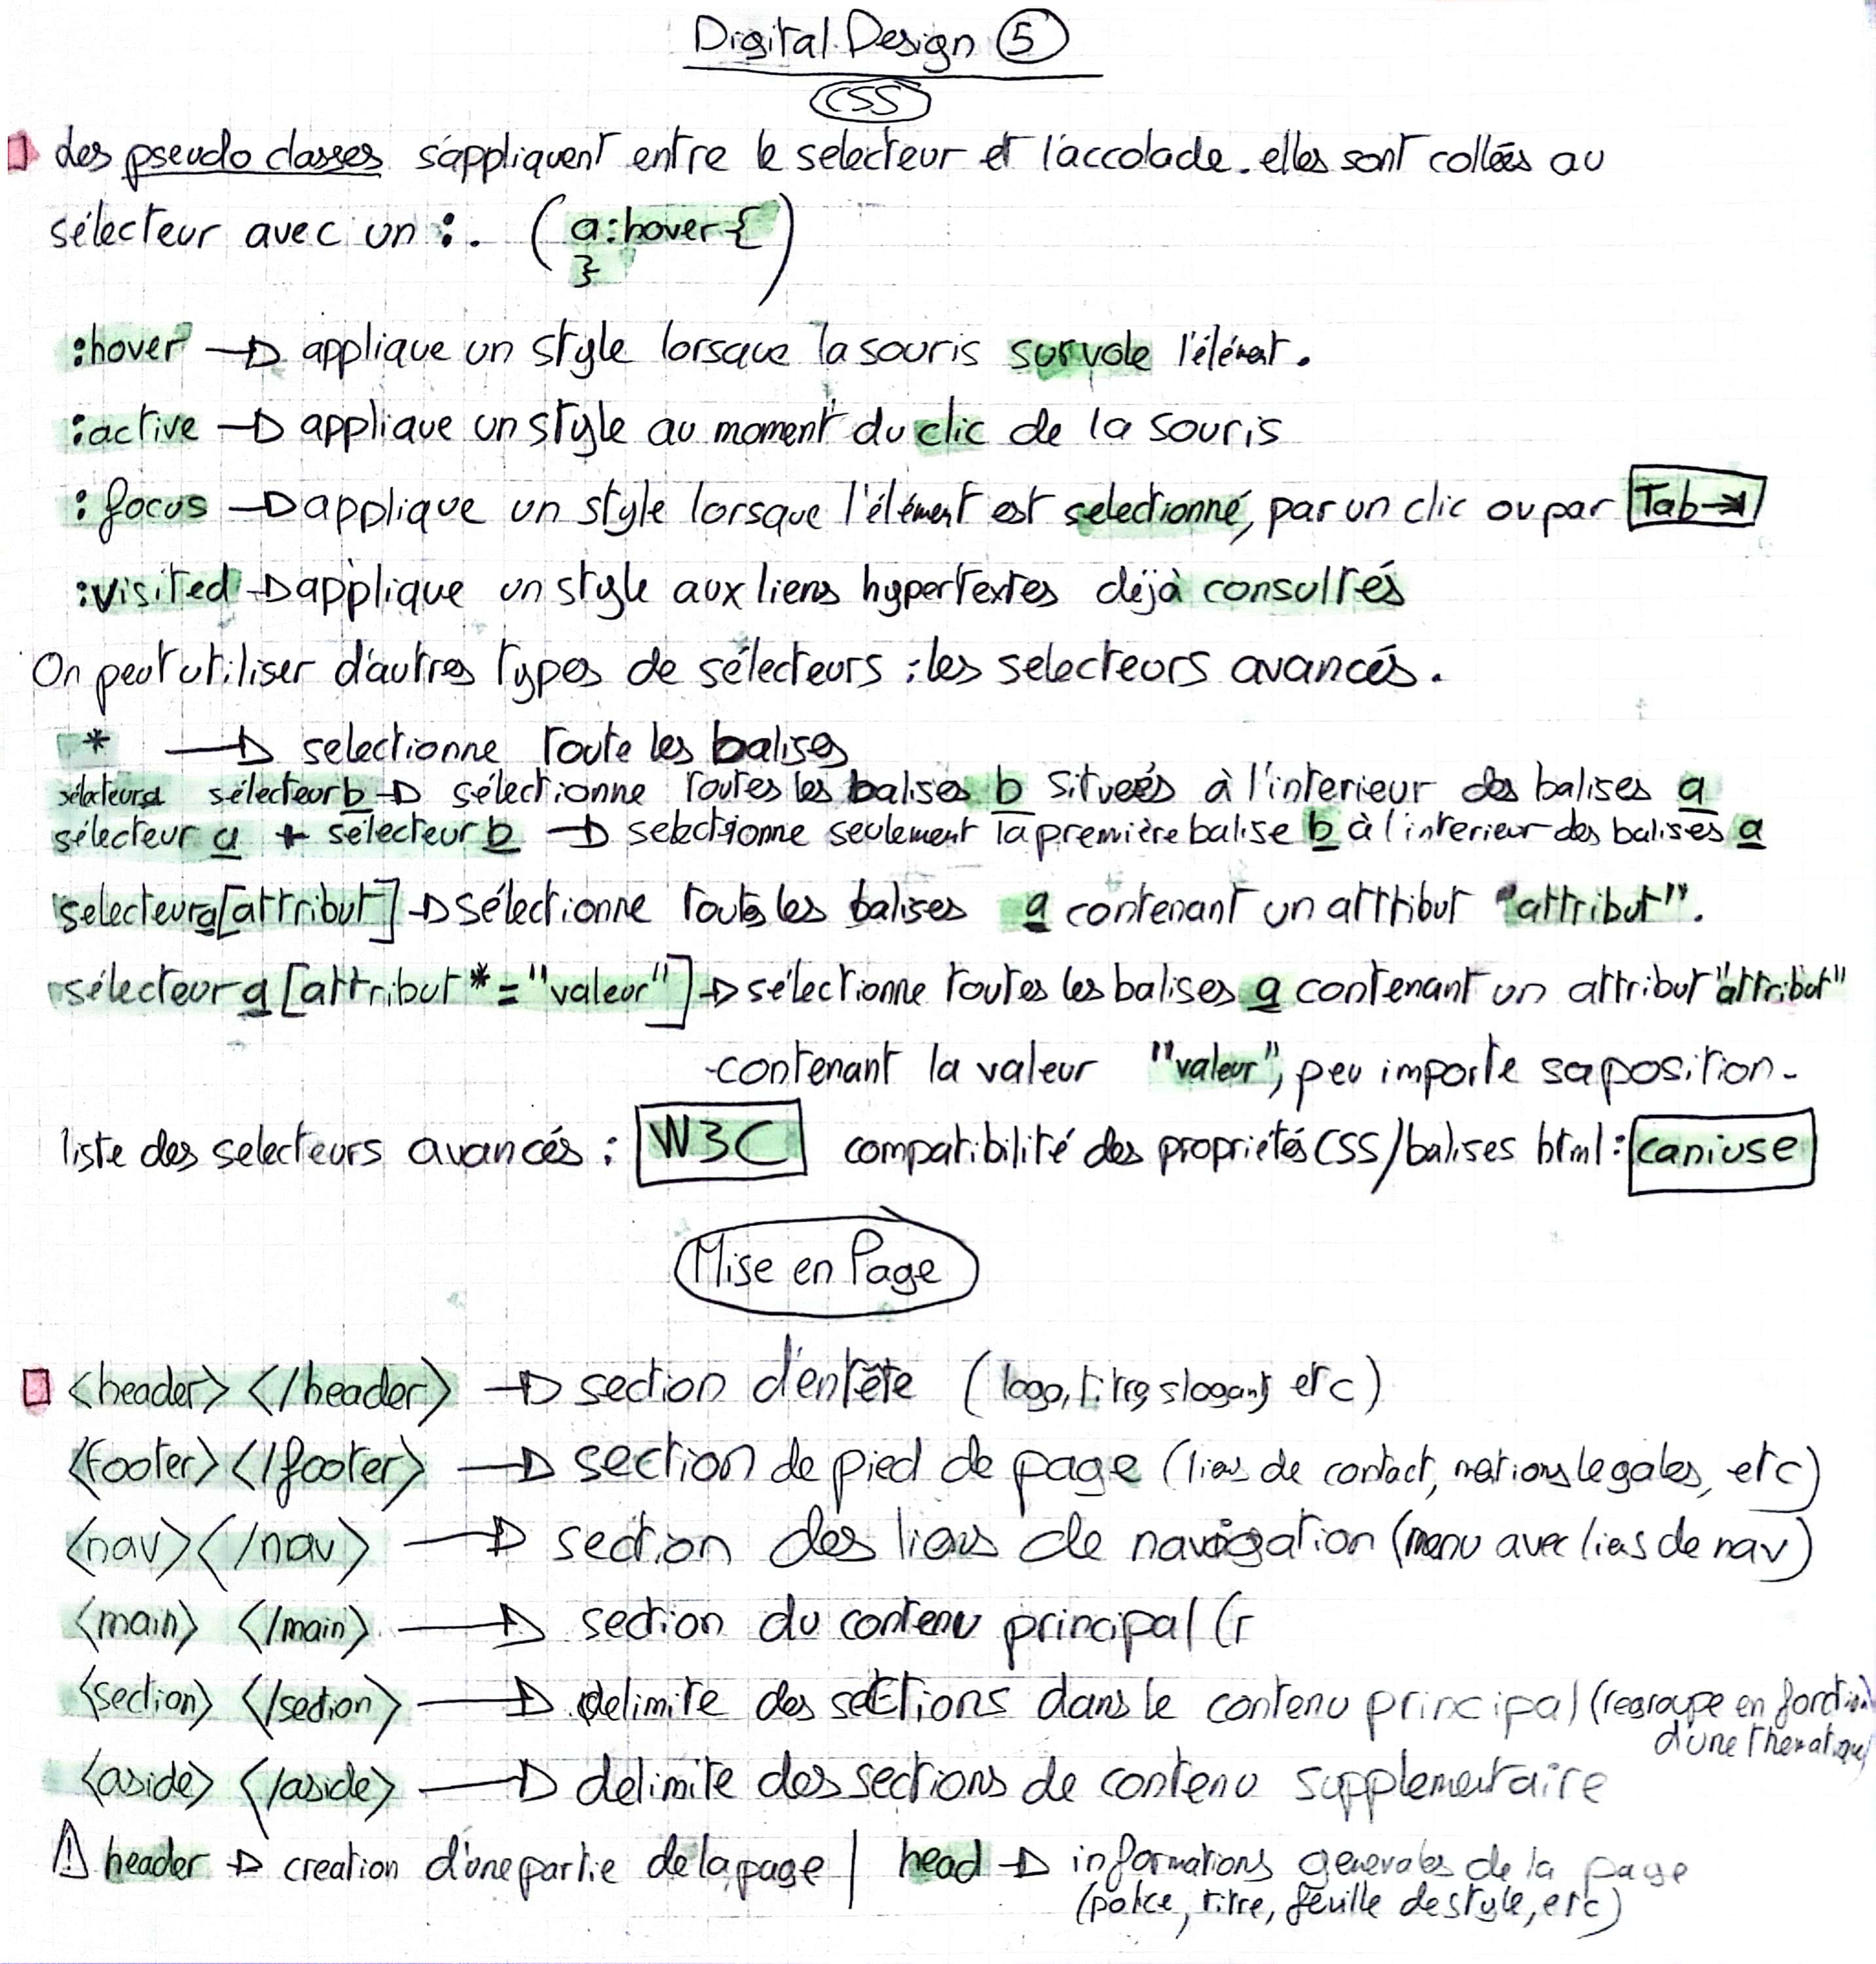 Digital Design 5
CSS
des pseudo classes s'appliquent entre le selecteur et l'accolade. elles sont collées au
sélecteur avec un :. (a:hover {
})
:hover → applique un style lorsque la souris survole l'élément.
:active → applique un style au moment du clic de la souris
:focus → applique un style lorsque l'élément est selectionné, par un clic ou par Tab→
:visited → applique un style aux liens hypertextes déjà consultés
On peut utiliser d'autres types de sélecteurs : les selecteurs avancés.
* → selectionne toute les balises
sélecteura sélecteurb → sélectionne toutes les balises b situées à l'interieur des balises a
sélecteur a + sélecteur b → selectionne seulement la première balise b à l'interieur des balises a
selecteura[attribut] → sélectionne toutes les balises a contenant un attribut "attribut".
sélecteur a [attribut *= "valeur"] → sélectionne toutes les balises a contenant un attribut "attribut"
contenant la valeur "valeur", peu importe sa position.
liste des selecteurs avancés : W3C compatibilité des propriétés CSS/balises html : caniuse
Mise en Page
<header> </header> → section d'entête (logo, titre, slogant, etc)
<footer> </footer> → section de pied de page (liens de contact, mentions legales, etc)
<nav> </nav> → section des liens de navigation (menu avec liens de nav)
<main> </main> → section du contenu principal (r
<section> </section> → delimite des sections dans le contenu principal (regroupe en fonction
d'une thematique)
<aside> </aside> → delimite des sections de contenu supplementaire
⚠ header → creation d'une partie de la page | head → informations generales de la page
(police, titre, feuille de style, etc)